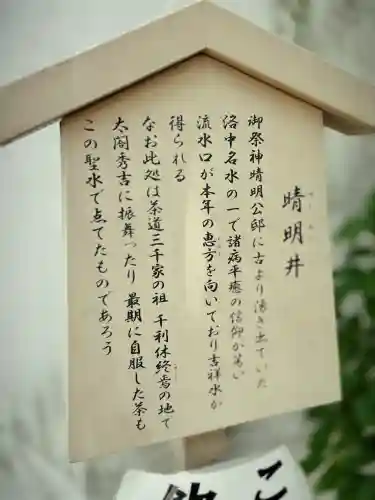 晴明井
御祭神晴明公邸に古より湧き出ていた
洛中名水の一で諸病平癒の信仰が篤い
流水口が本年の恵方を向いており吉祥水が
得られる
なお此処は茶道三千家の祖 千利休終焉の地で
太閤秀吉に振舞ったり 最期に自服した茶も
この聖水で点てたものであろう
こ